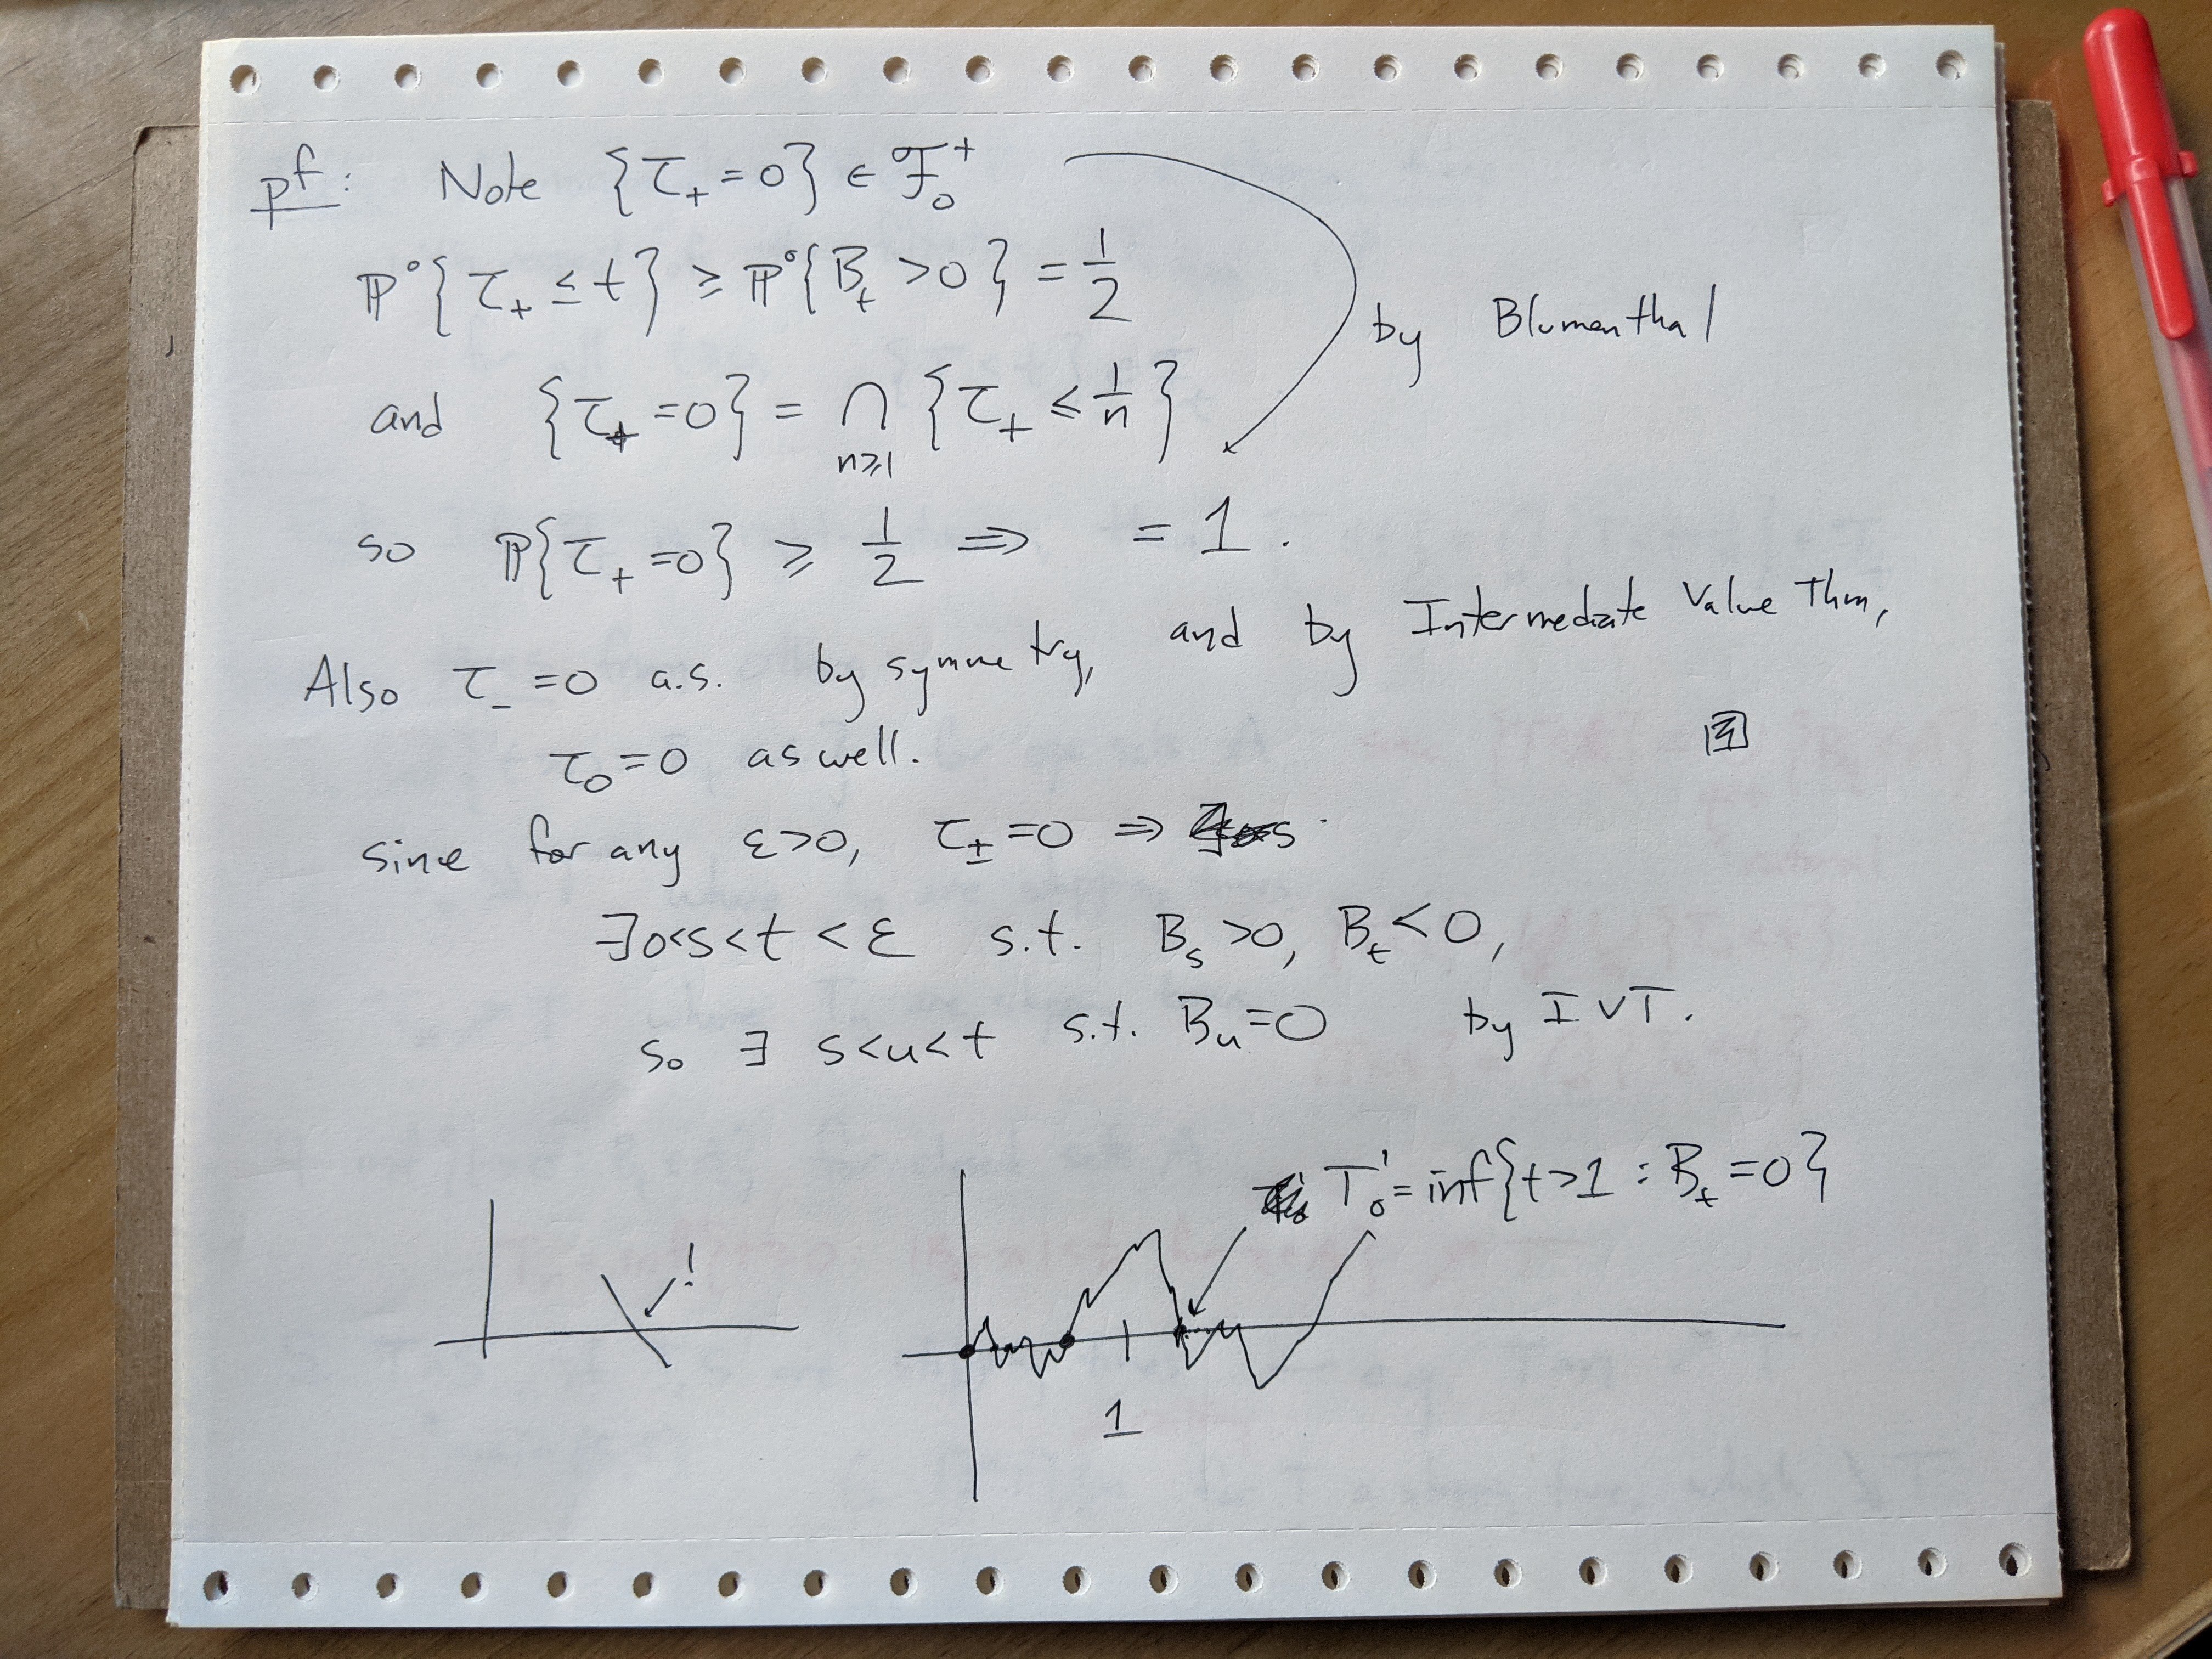 pf: Note {τ₊ = 0} ∈ ℱ₀⁺
ℙ°{τ₊ ≤ t} ≥ ℙ°{B_t > 0} = 1/2
by Blumenthal
and {τ₊ = 0} = ∩_{n≥1} {τ₊ ≤ 1/n}
so ℙ{τ₊ = 0} ≥ 1/2 ⇒ = 1.
Also τ₋ = 0 a.s. by symmetry, and by Intermediate Value Thm,
τ₀ = 0 as well.
since for any ε>0, τ± = 0 ⇒
∃ 0<s<t<ε s.t. B_s >0, B_t < 0,
so ∃ s<u<t s.t. B_u = 0 by IVT.
T₀¹ = inf{t>1 : B_t = 0}
!
1